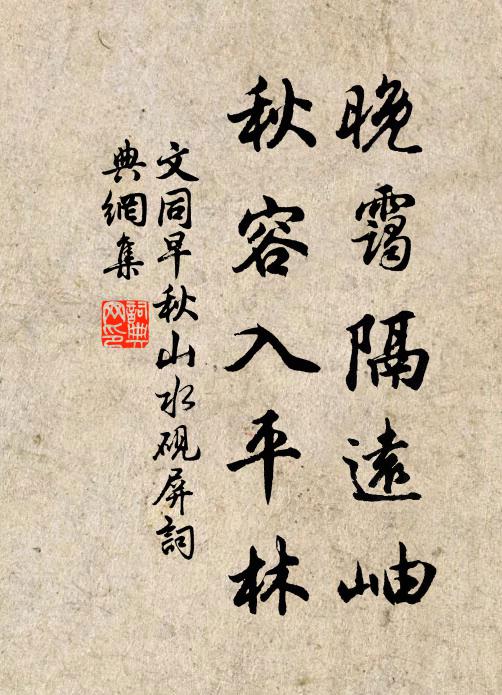 晚靄隔遠岫
秋容入平林
文同早秋山水硯屏詞
典網集
詞典网印